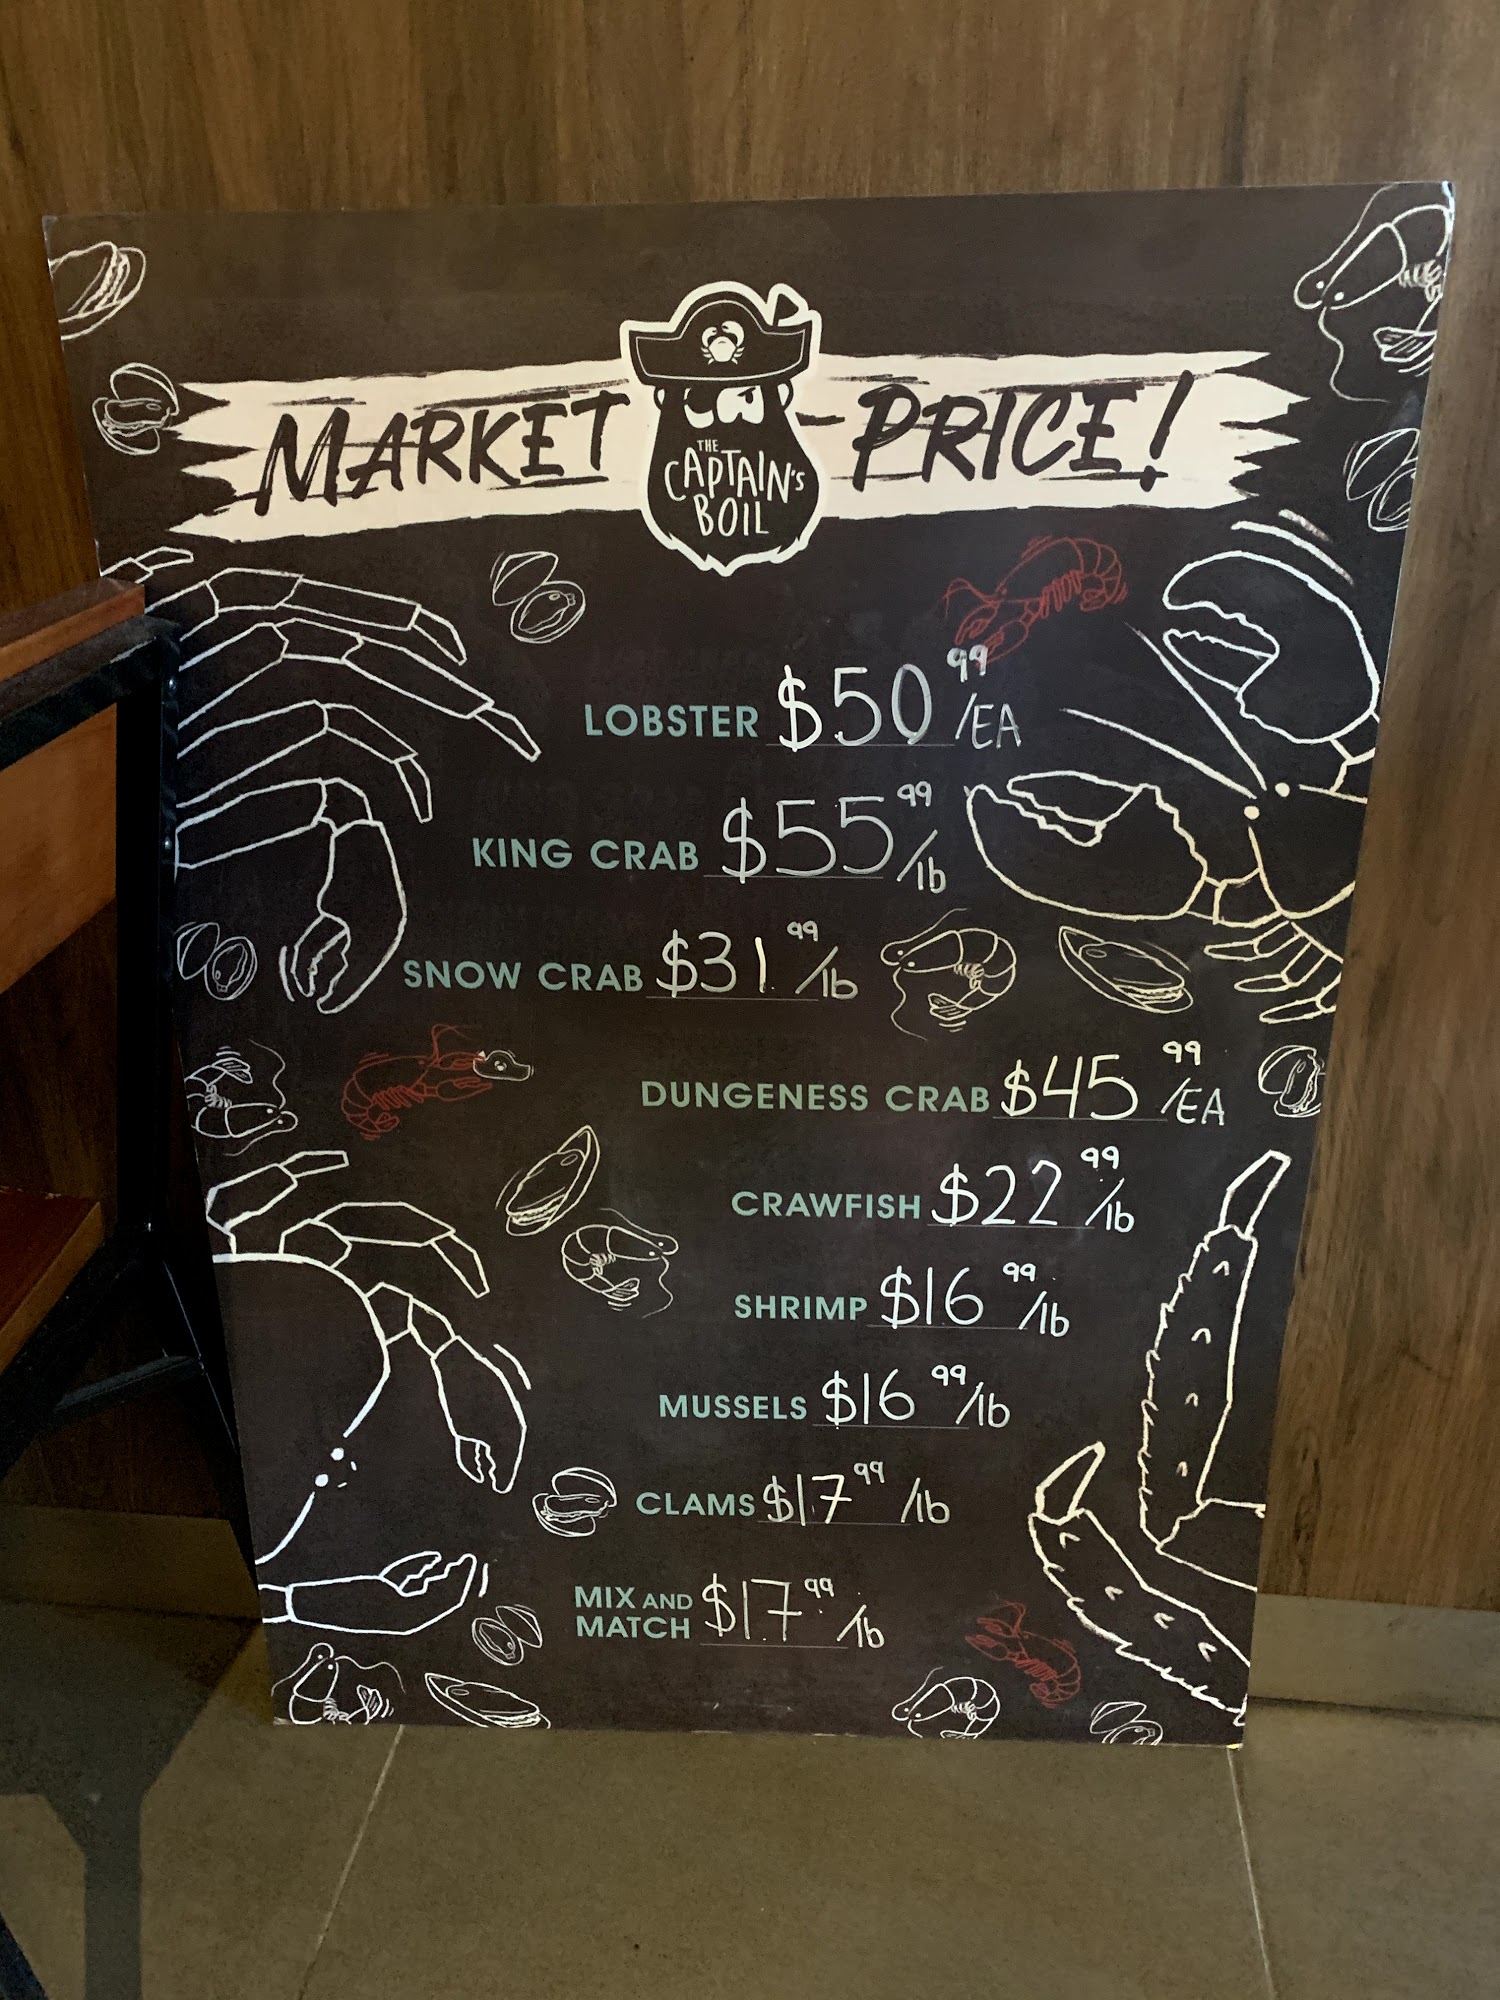 MARKET-PRICE!
THE
CAPTAIN'S
BOIL
LOBSTER $50 99 /EA
KING CRAB $55 99 /lb
SNOW CRAB $31 99 /lb
DUNGENESS CRAB $45 99 /EA
CRAWFISH $22 99 /lb
SHRIMP $16 99 /lb
MUSSELS $16 99 /lb
CLAMS $17 99 /lb
MIX AND
MATCH $17 99 /lb